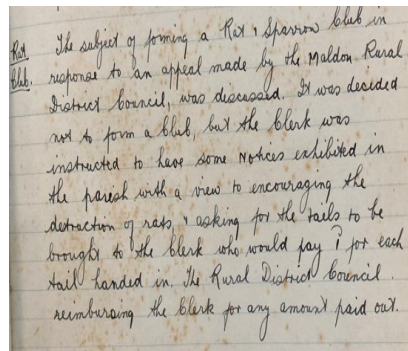 Rat
Club.
The subject of forming a Rat & Sparrow Club in
response to an appeal made by the Maldon Rural
District Council, was discussed. It was decided
not to form a Club, but the Clerk was
instructed to have some Notices exhibited in
the parish with a view to encouraging the
detraction of rats, & asking for the tails to be
brought to the Clerk who would pay for each
tail handed in. The Rural District Council
reimbursing the Clerk for any amount paid out.